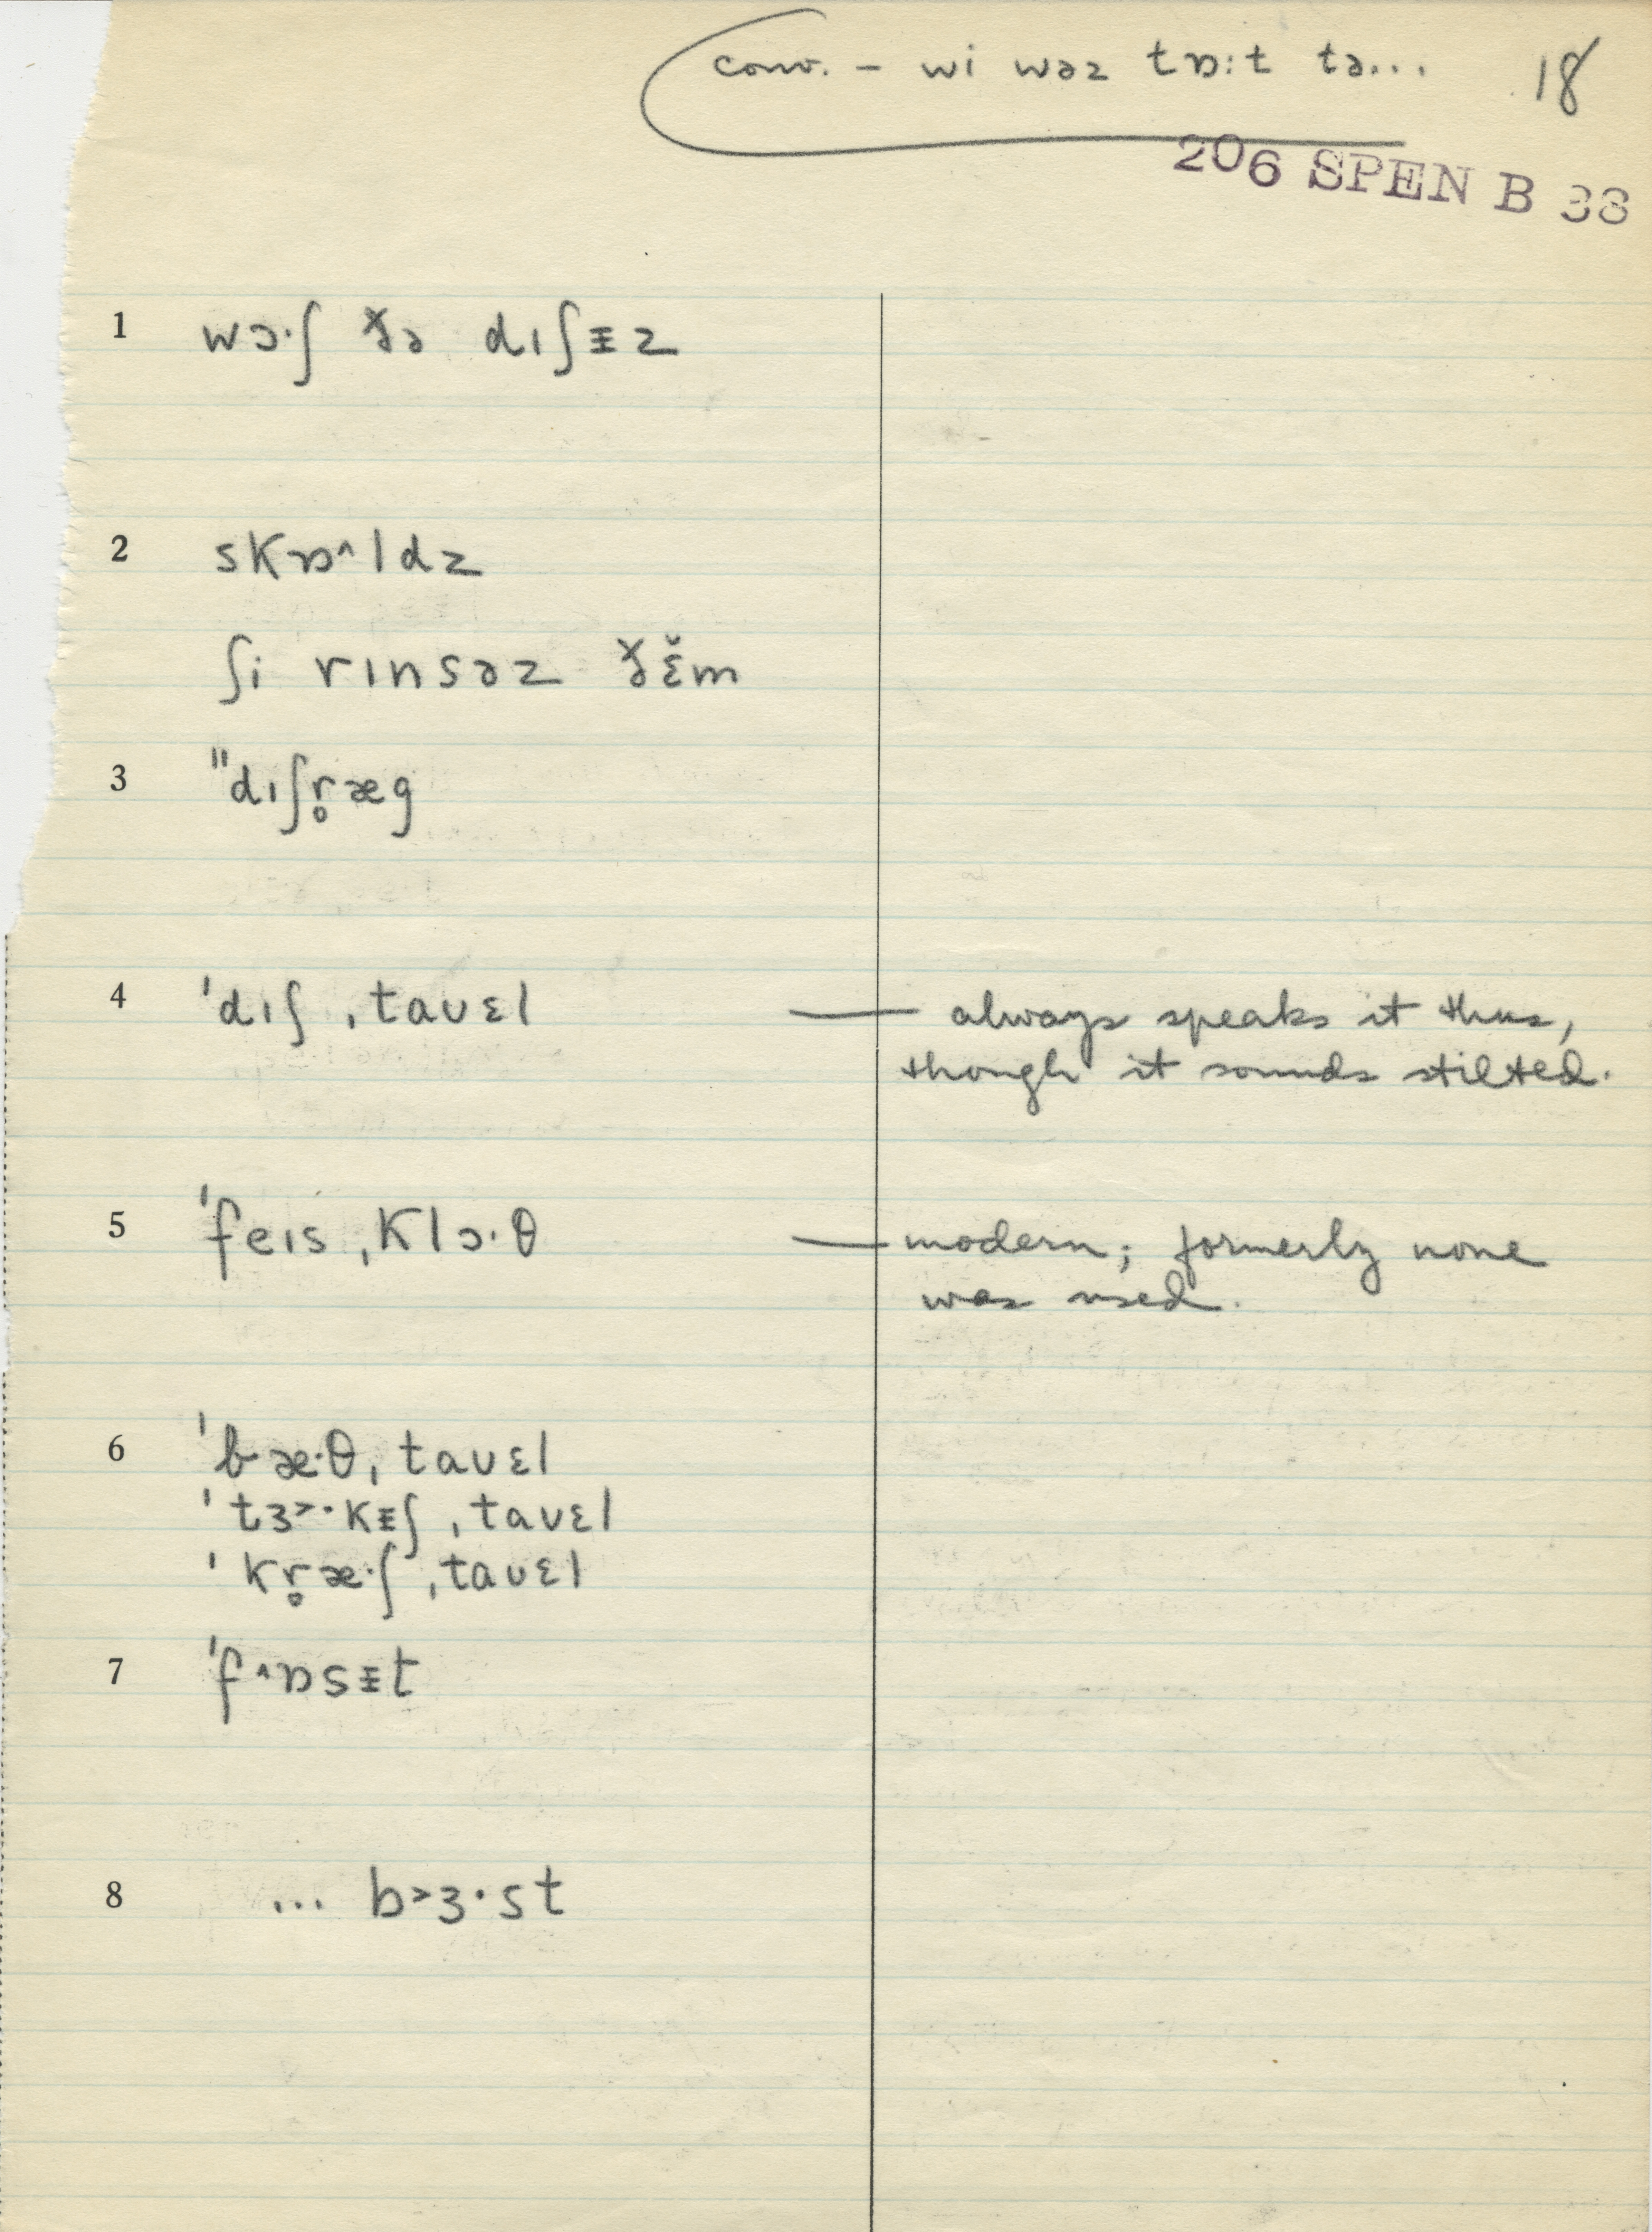 conv. – wi wəz tɒːt tə... 18
206 SPEN B 38
1 wɔ·ʃ ðə dıʃᵻz
2 skɒ^ldz
ʃi rınsəz ðɛ̆m
3 "dıʃr̥æg
4 ˈdıʃ ˌtaʊɛl — always speaks it thus,
though it sounds stilted.
5 ˈfeıs ˌklɔ·θ — modern; formerly none
was used.
6 ˈbæ·θˌtaʊɛl
ˈtɜ˃·kᵻʃ ˌtaʊɛl
ˈkr̥æ·ʃ ˌtaʊɛl
7 ˈf^ɒsᵻt
8 ... b˃ɜ·st